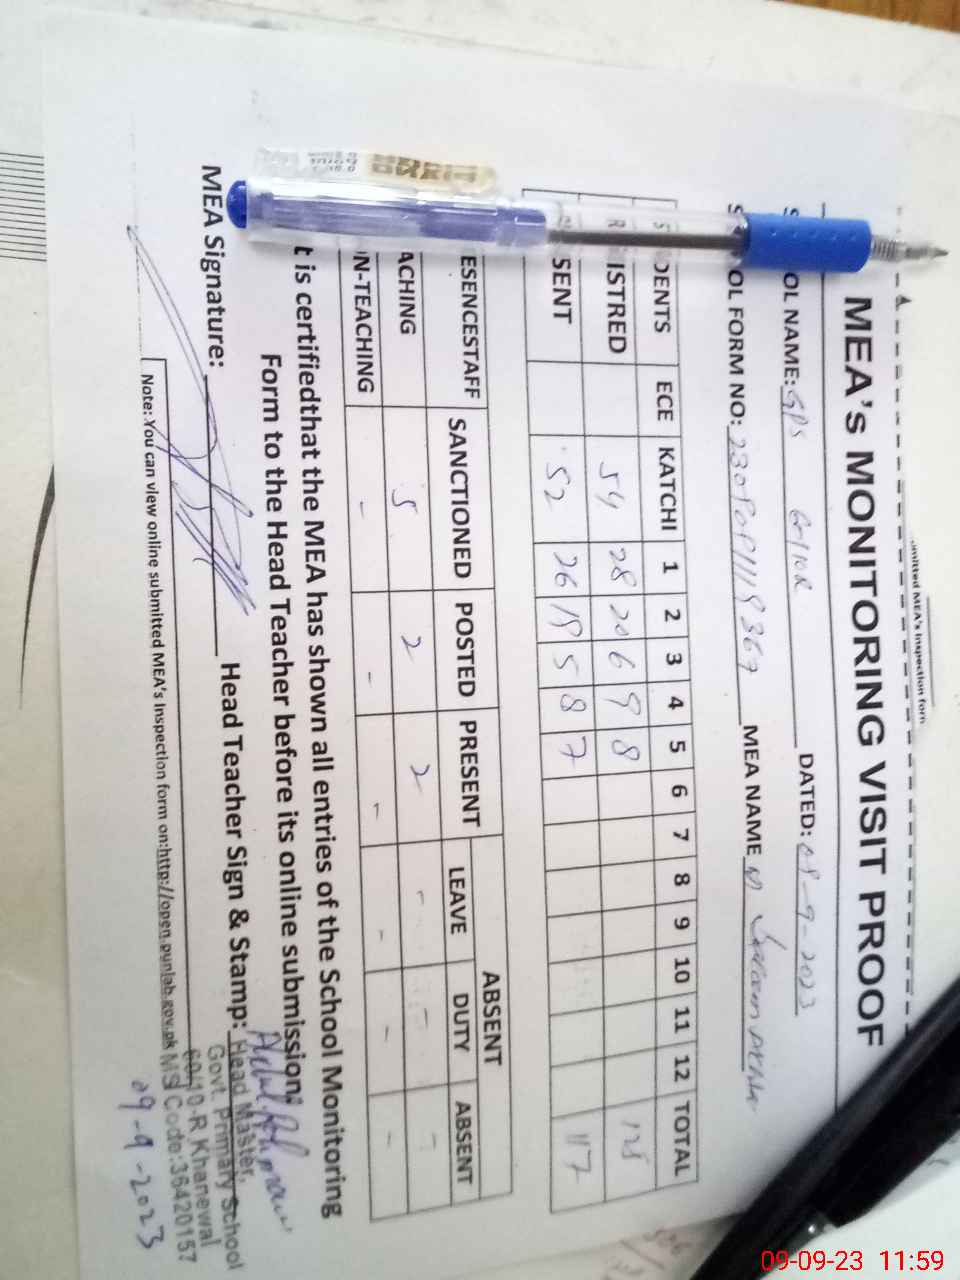 mitted MEA's Inspection form
MEA's MONITORING VISIT PROOF
OL NAME: GPS 60/10R DATED: 09-9-2023
OL FORM NO: MEA NAME
DENTS ECE KATCHI 1 2 3 4 5 6 7 8 9 10 11 12 TOTAL
ISTRED 54 28 20 6 9 8 125
SENT 52 26 19 5 8 7 117
ESENCESTAFF SANCTIONED POSTED PRESENT ABSENT
LEAVE DUTY ABSENT
ACHING 5 2 2 - - -
N-TEACHING - - - - - -
t is certifiedthat the MEA has shown all entries of the School Monitoring
Form to the Head Teacher before its online submission.
MEA Signature: Head Teacher Sign & Stamp:
Head Master,
Govt. Primary School
60/10-R Khanewal
MS Code:36420157
Note: You can view online submitted MEA's Inspection form on:http://open.punjab.gov.pk
09-9-2023
09-09-23 11:59